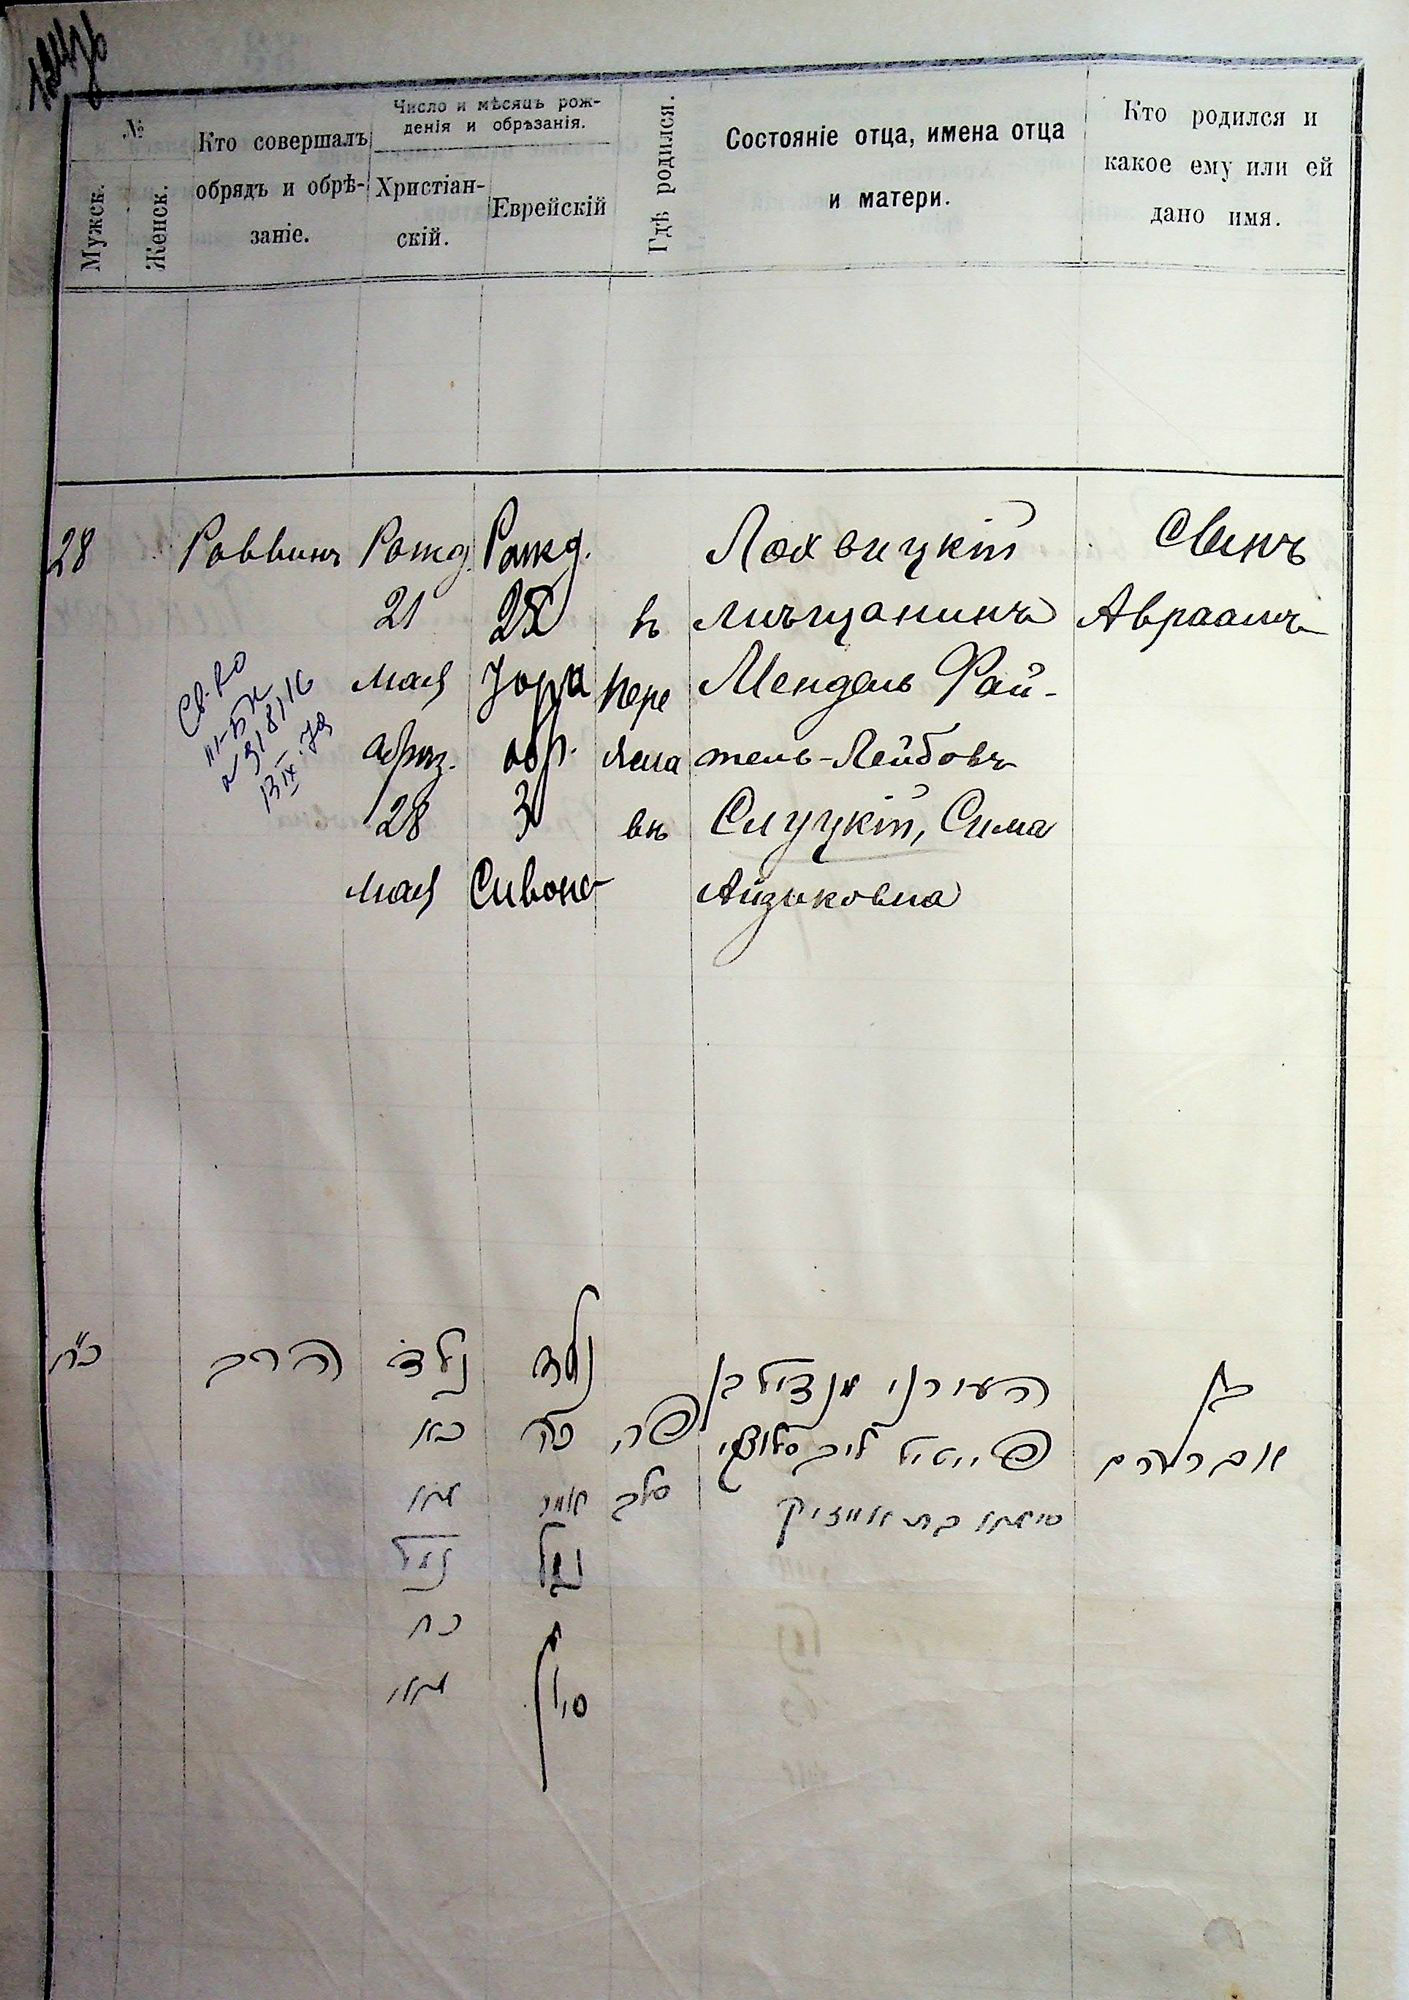 №
Мужск.
Женск.
Кто совершалъ
обрядъ и обрѣ-
заніе.
Число и мѣсяцъ рож-
денія и обрѣзанія.
Христіан-
скій.
Еврейскій
Гдѣ родился.
Состояніе отца, имена отца
и матери.
Кто родился и
какое ему или ей
дано имя.
28
Раввинъ
Рожд.
21
мая
обрѣз.
28
мая
Рожд.
Іора
обр.
3
Сивона
въ
Пере
яслa
вѣ
Лохвицкій
мѣщанинъ
Мендель Фай-
тель-Лейбовъ
Слуцкій, Сима
Айзиковна
Сынъ
Авраамъ
כ״ח
הרב
נולד
כא
מאי
נימול
כח
מאי
נולד
כה
אייר
נימול
ג
סיון
פה
העירני מנדיל בן
פייטיל ליב סלוצקי
סימא בת אייזיק
בן
אברהם